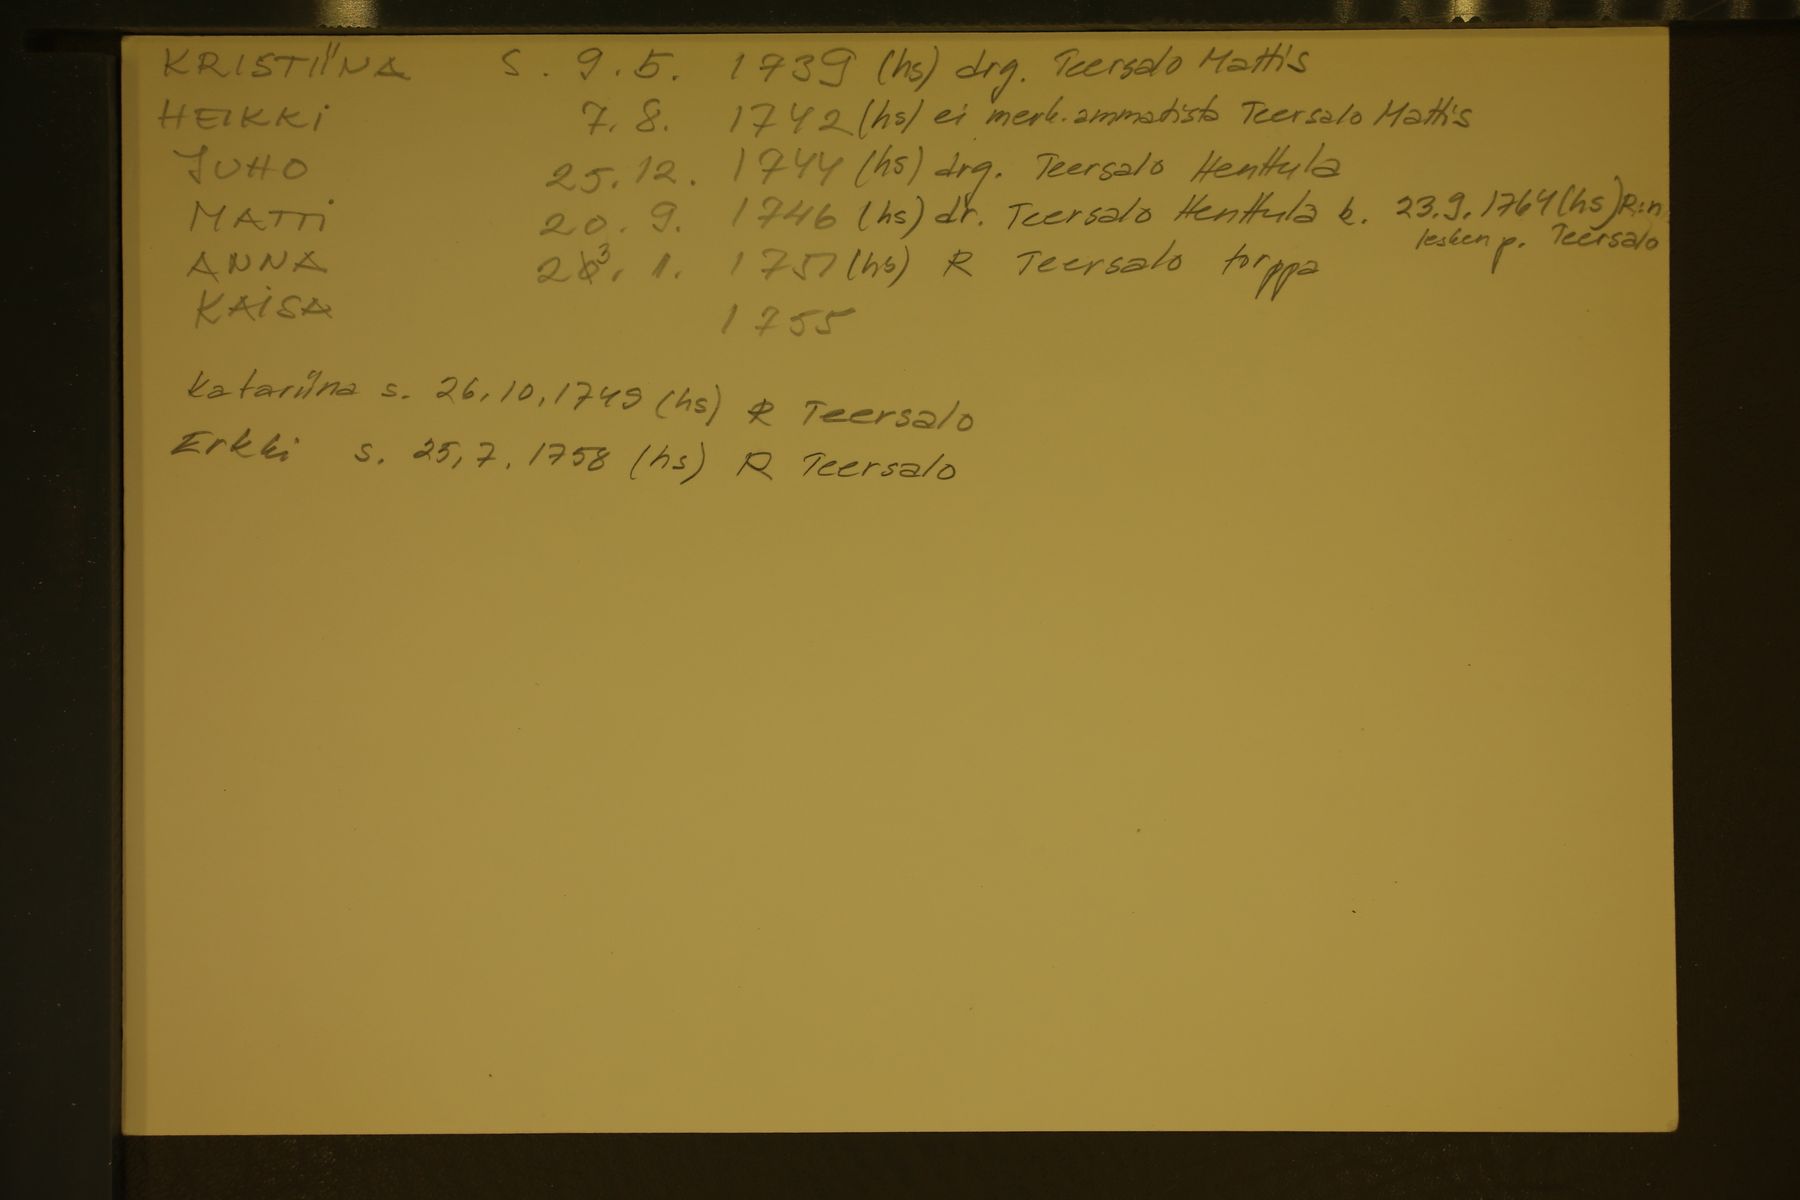 KRISTIINA S. 9.5. 1739 (hs) drg. Teersalo Mattis
HEIKKI 7.8. 1742 (hs) ei merk. ammatista Teersalo Mattis
JUHO 25.12. 1744 (hs) drg. Teersalo Henttula
MATTI 20.9. 1746 (hs) dr. Teersalo Henttula k. 23.9.1764 (hs) R:n
lesken p. Teersalo
ANNA 23.1. 1751 (hs) R Teersalo torppa
KAISA 1755
Katariina s. 26.10.1749 (hs) R Teersalo
Erkki s. 25.7.1758 (hs) R Teersalo